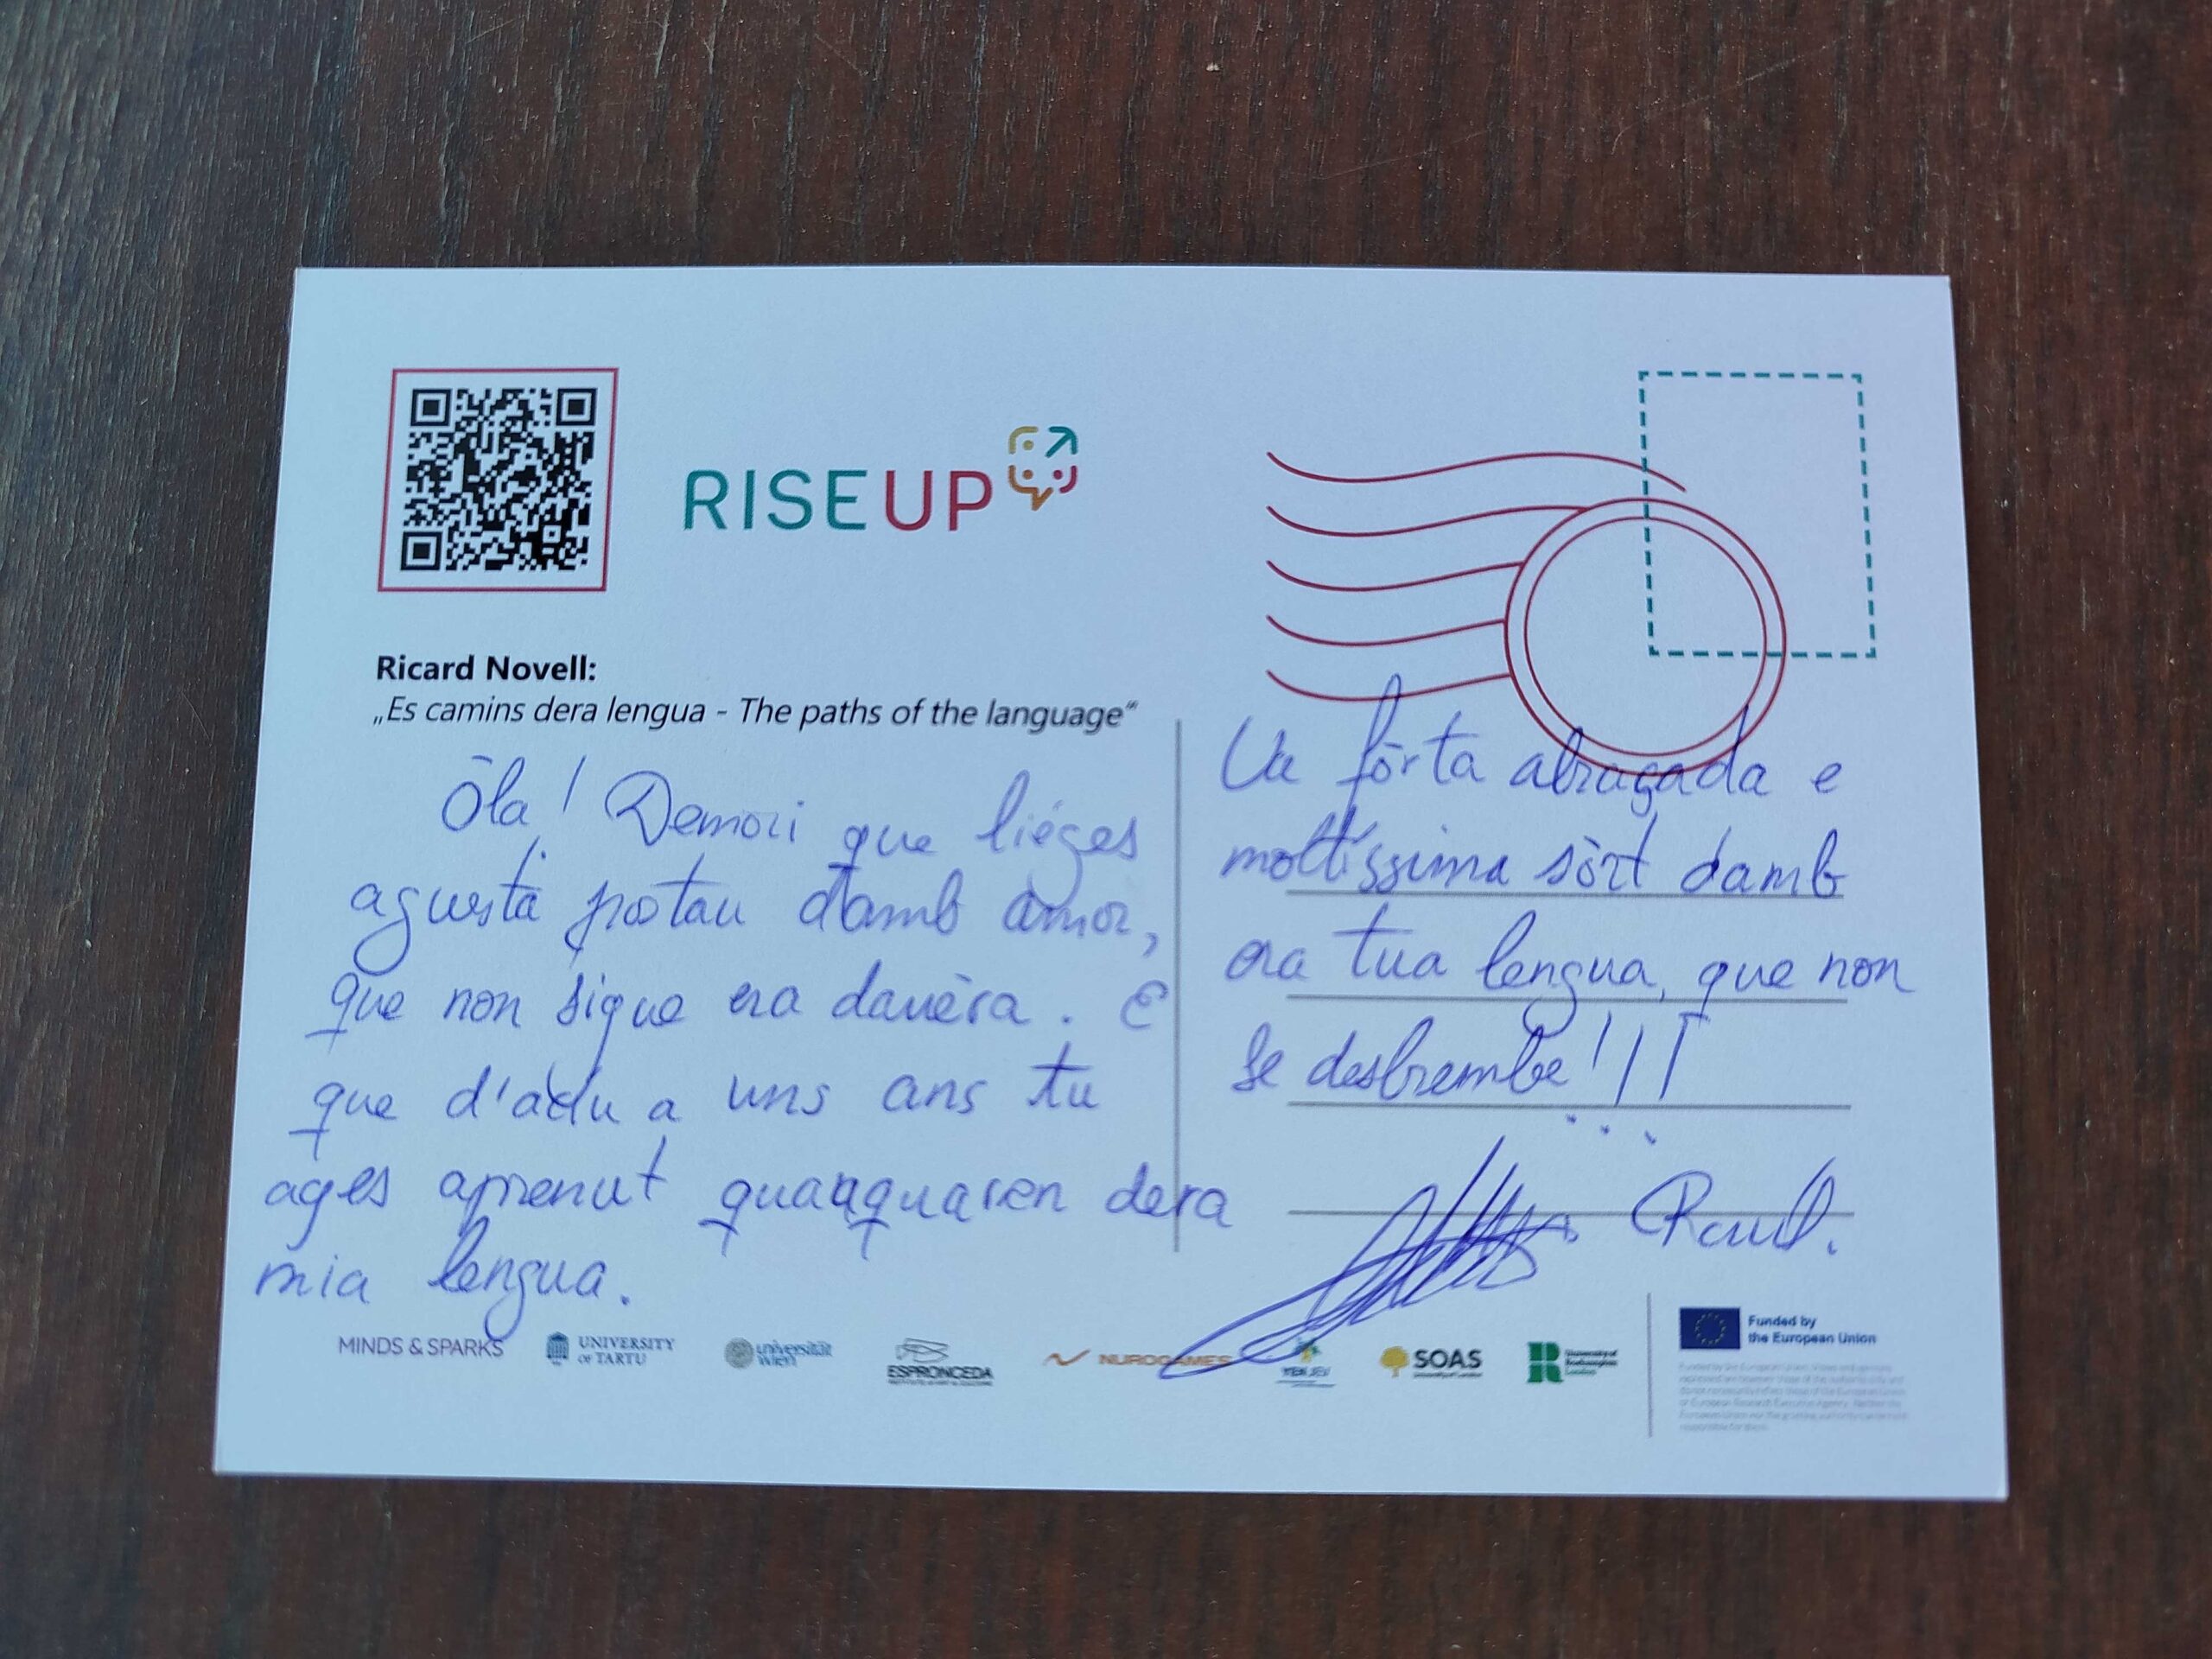 RISEUP
Ricard Novell:
„Es camins dera lengua - The paths of the language“
Òla! Demori que lièges
aguesta postau damb amor,
que non sigue era darrèra. E
que d'aciu a uns ans tu
ages aprenut quauquaren dera
mia lengua.
Ua fòrta abraçada e
moltissima sòrt damb
era tua lengua, que non
se desbrembe!!!
Raul.
MINDS & SPARKS
UNIVERSITY
OF TARTU
universität
wien
ESPRONCEDA
NUROGAMES
SOAS
University of London
University of
Roehampton
London
Funded by
the European Union